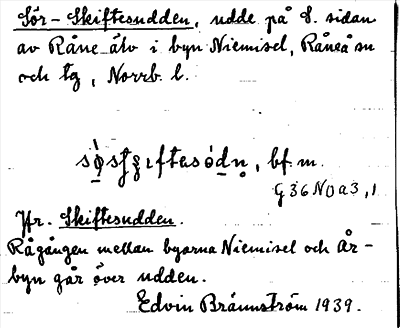 Sör-Skiftesudden, udde på S. sidan
av Råne älv i byn Niemisel, Råneå sn
och tg, Norrb. l.
bf. m.
G 36 N0a3,1
Jfr. Skiftesudden.
Rågången mellan byarna Niemisel och År-
byn går över udden.
Edvin Brännström 1939.